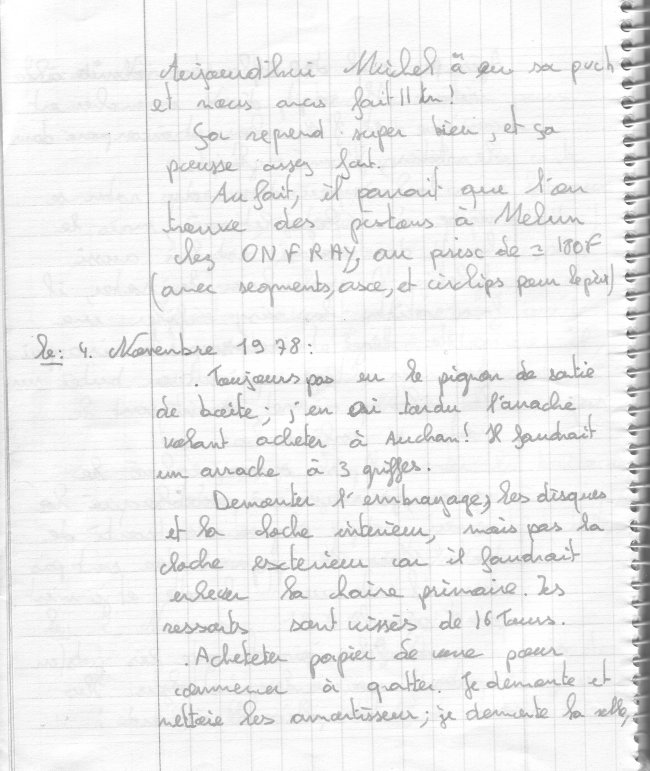 Aujourd'hui Michel à eu sa puch
et nous avons fait 11 km!
Ça reprend super bien, et ça
pousse assez fort.
Au fait, il parait que l'on
trouve des pistons à Melun
chez ONFRAY, au prix de ≃ 180F
(avec segments, axe, et circlips pour le prix)
le: 4. Novembre 1978:
. Toujours pas eu le pignon de sortie
de boite; j'en ai tordu l'arrache
volant acheter à Auchan! Il faudrait
un arrache à 3 griffes.
Demonter l'embrayage, les disques
et la cloche interieur, mais pas la
cloche exterieur car il faudrait
enlever la chaine primaire. Les
ressorts sont vissés de 16 Tours.
. Acheteter papier de verre pour
commencer à gratter. Je demonte et
nettoie les amortisseur; je demonte la selle,